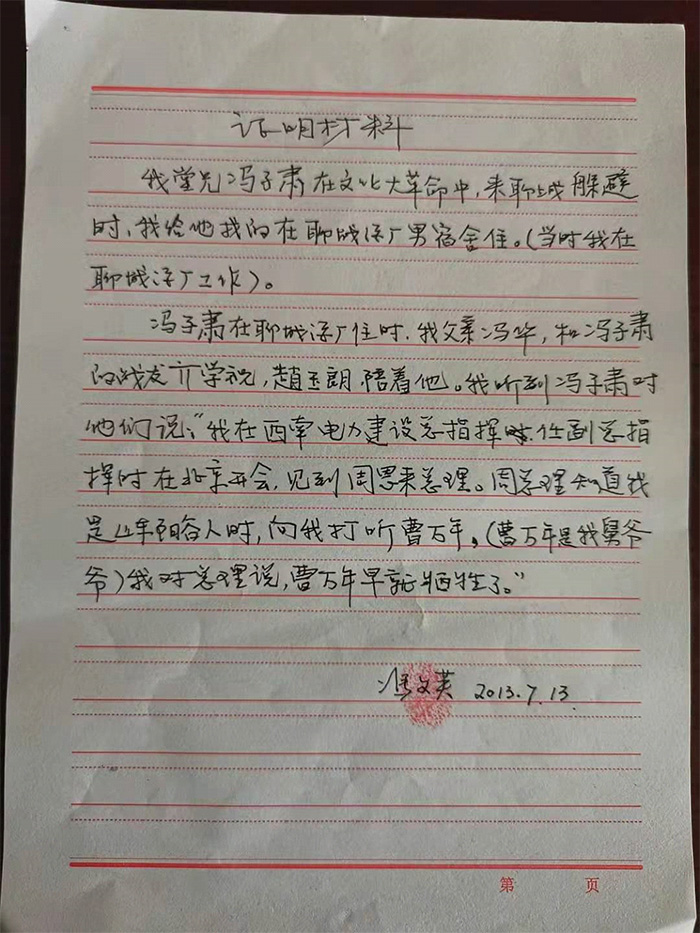 证明材料
我堂兄冯子肃在文化大革命中,来聊城躲避
时,我给他找的在聊城浮厂男宿舍住。(当时我在
聊城浮厂工作)。
冯子肃在聊城浮厂住时.我父亲冯华,和冯子肃
的战友亓学祝,趙玉朗陪着他。我听到冯子肃对
他们说:“我在西南电力建设总指挥 任副总指
挥时在北京开会,见到周恩来总理。周总理知道我
是山东阳谷人时,向我打听曹万年,(曹万年是我舅爷
爷)我对总理说,曹万年早就牺牲了。”
冯文英 2013.7.13.
第 页